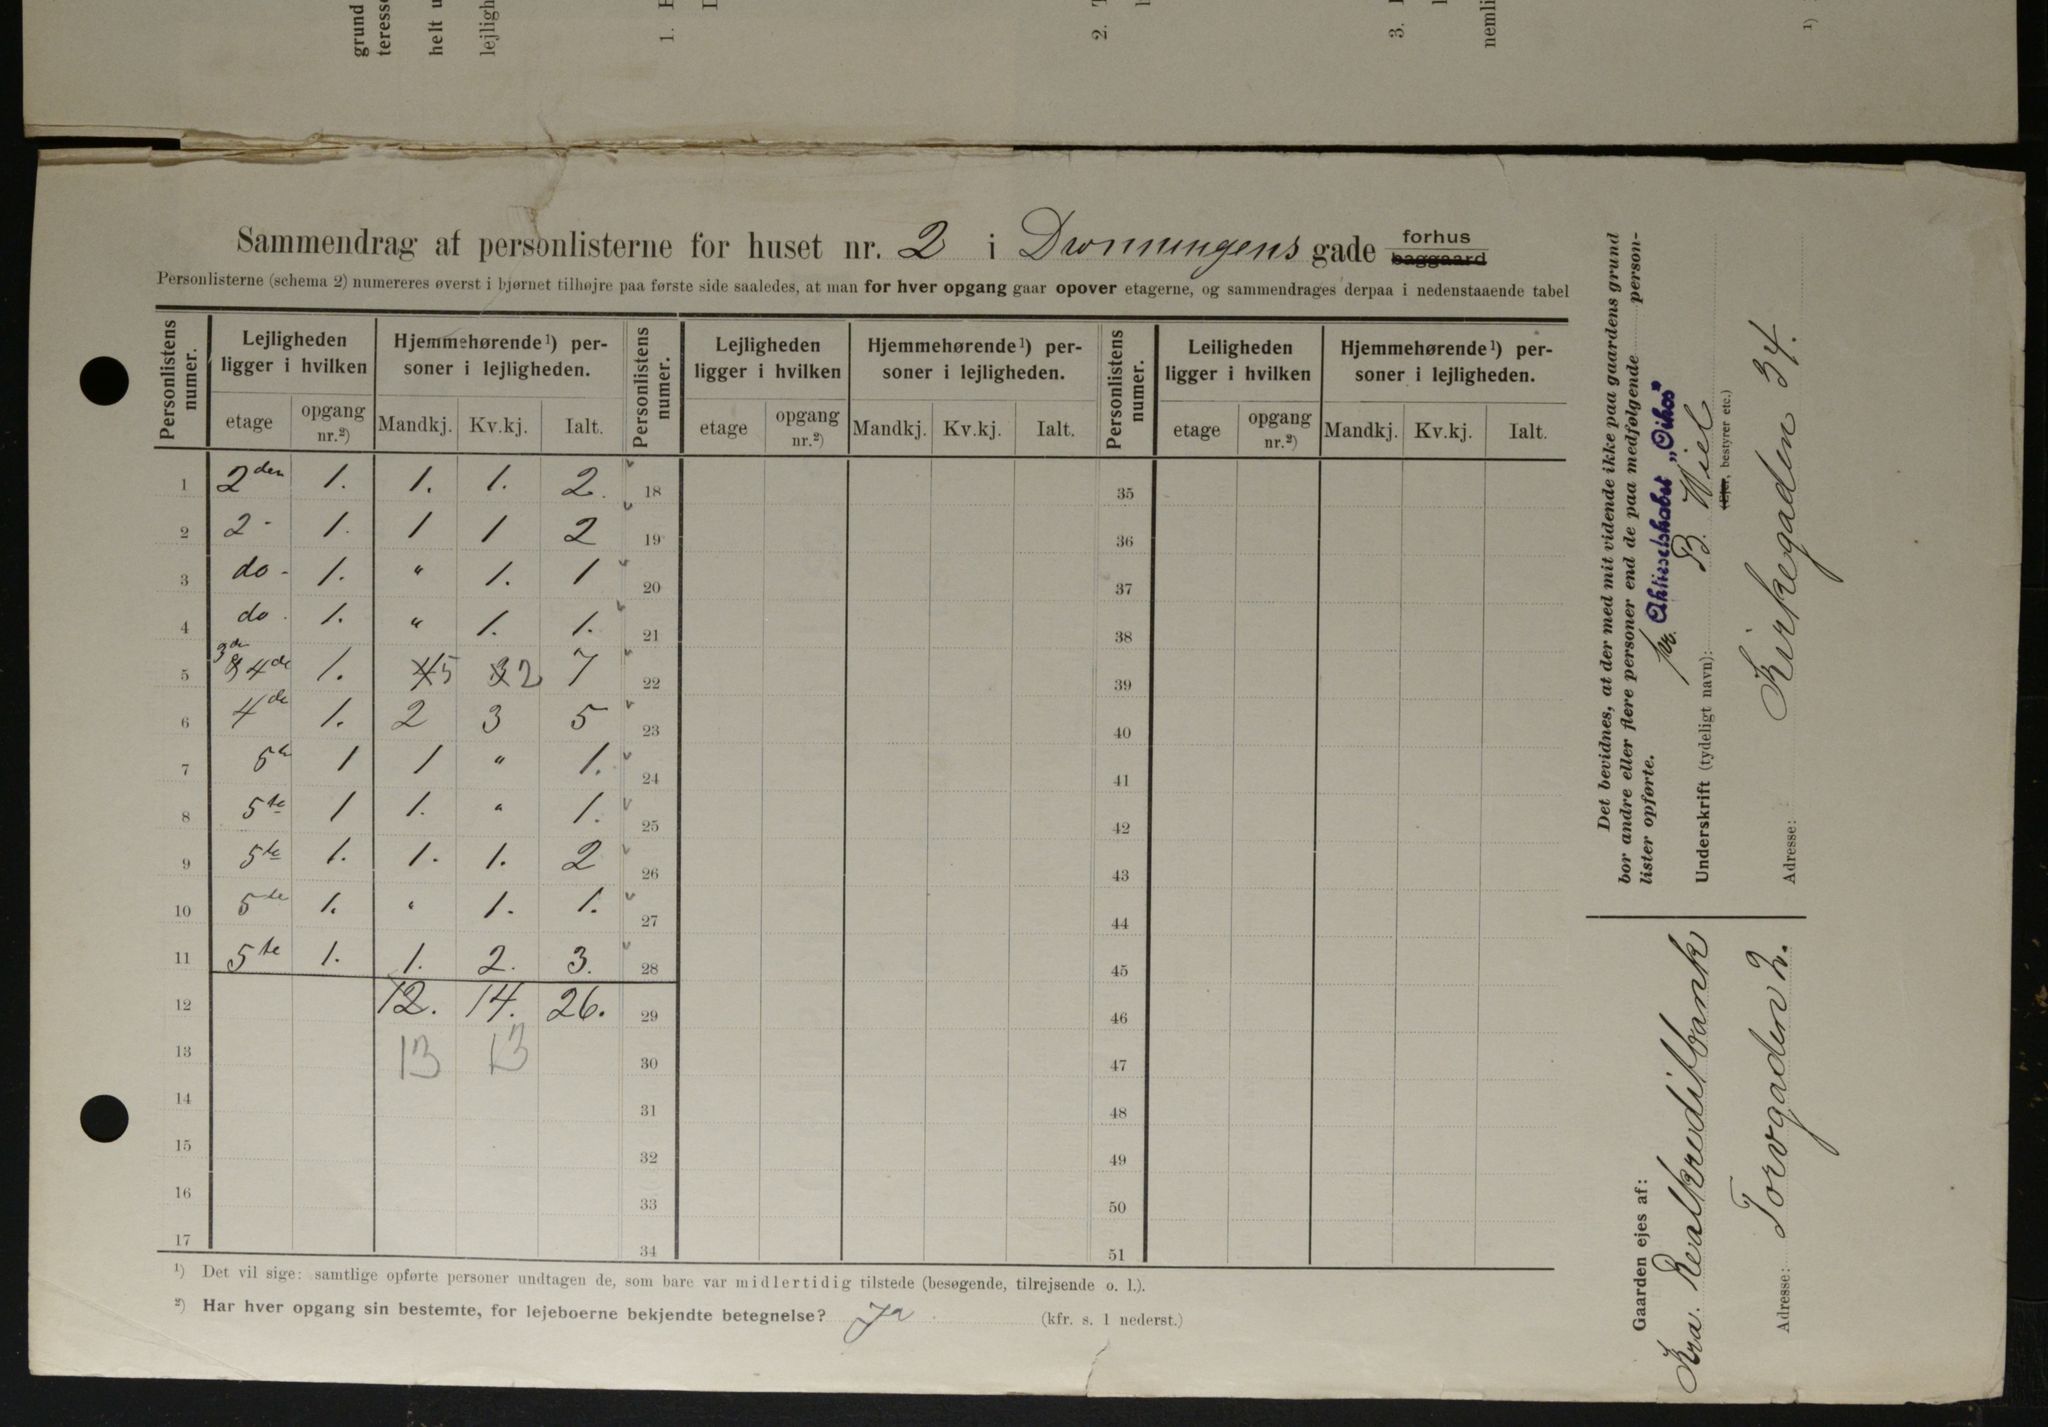 grund
teresse
helt u
lejligh
1.
2.
3.
nemli
1)
Sammendrag af personlisterne for huset nr. 2 i Dronningens gade forhus baggaard
Personlisterne (schema 2) numereres øverst i hjørnet tilhøjre paa første side saaledes, at man for hver opgang gaar opover etagerne, og sammendrages derpaa i nedenstaaende tabel
Personlistens numer. Lejligheden ligger i hvilken Hjemmehørende 1) personer i lejligheden. Personlistens numer. Lejligheden ligger i hvilken Hjemmehørende 1) personer i lejligheden. Personlistens numer. Leiligheden ligger i hvilken Hjemmehørende 1) personer i lejligheden.
etage opgang nr. 2) Mandkj. Kv.kj. Ialt. etage opgang nr. 2) Mandkj. Kv.kj. Ialt. etage opgang nr. 2) Mandkj. Kv.kj. Ialt.
1 2den 1. 1. 1. 2. 18 35
2 2 - 1. 1 1 2 19 36
3 do - 1. " 1. 1 20 37
4 do . 1. " 1. 1. 21 38
5 3de & 4de 1. 4 5 3 2 7 22 39
6 4de 1. 2 3 5 23 40
7 5te 1 1 " 1. 24 41
8 5te 1 1. " 1. 25 42
9 5te 1. 1. 1. 2 26 43
10 5te 1. " 1. 1. 27 44
11 5te 1. 1. 2. 3. 28 45
12 12. 14. 26. 29 46
13 13 13 30 47
14 31 48
15 32 49
16 33 50
17 34 51
1) Det vil sige: samtlige opførte personer undtagen de, som bare var midlertidig tilstede (besøgende, tilrejsende o. l.).
2) Har hver opgang sin bestemte, for lejeboerne bekjendte betegnelse? Ja (kfr. s. 1 nederst.)
Det bevidnes, at der med mit vidende ikke paa gaardens grund
bor andre eller flere personer end de paa medfølgende person-
lister opførte.
pr. Aktieselskabet „Oikos"
Underskrift (tydeligt navn): B. Wiel
(Ejer, bestyrer etc.)
Adresse: Kirkegaden 34.
Gaarden ejes af:
Kra. Realkreditbank
Adresse: Torvgaden 2.